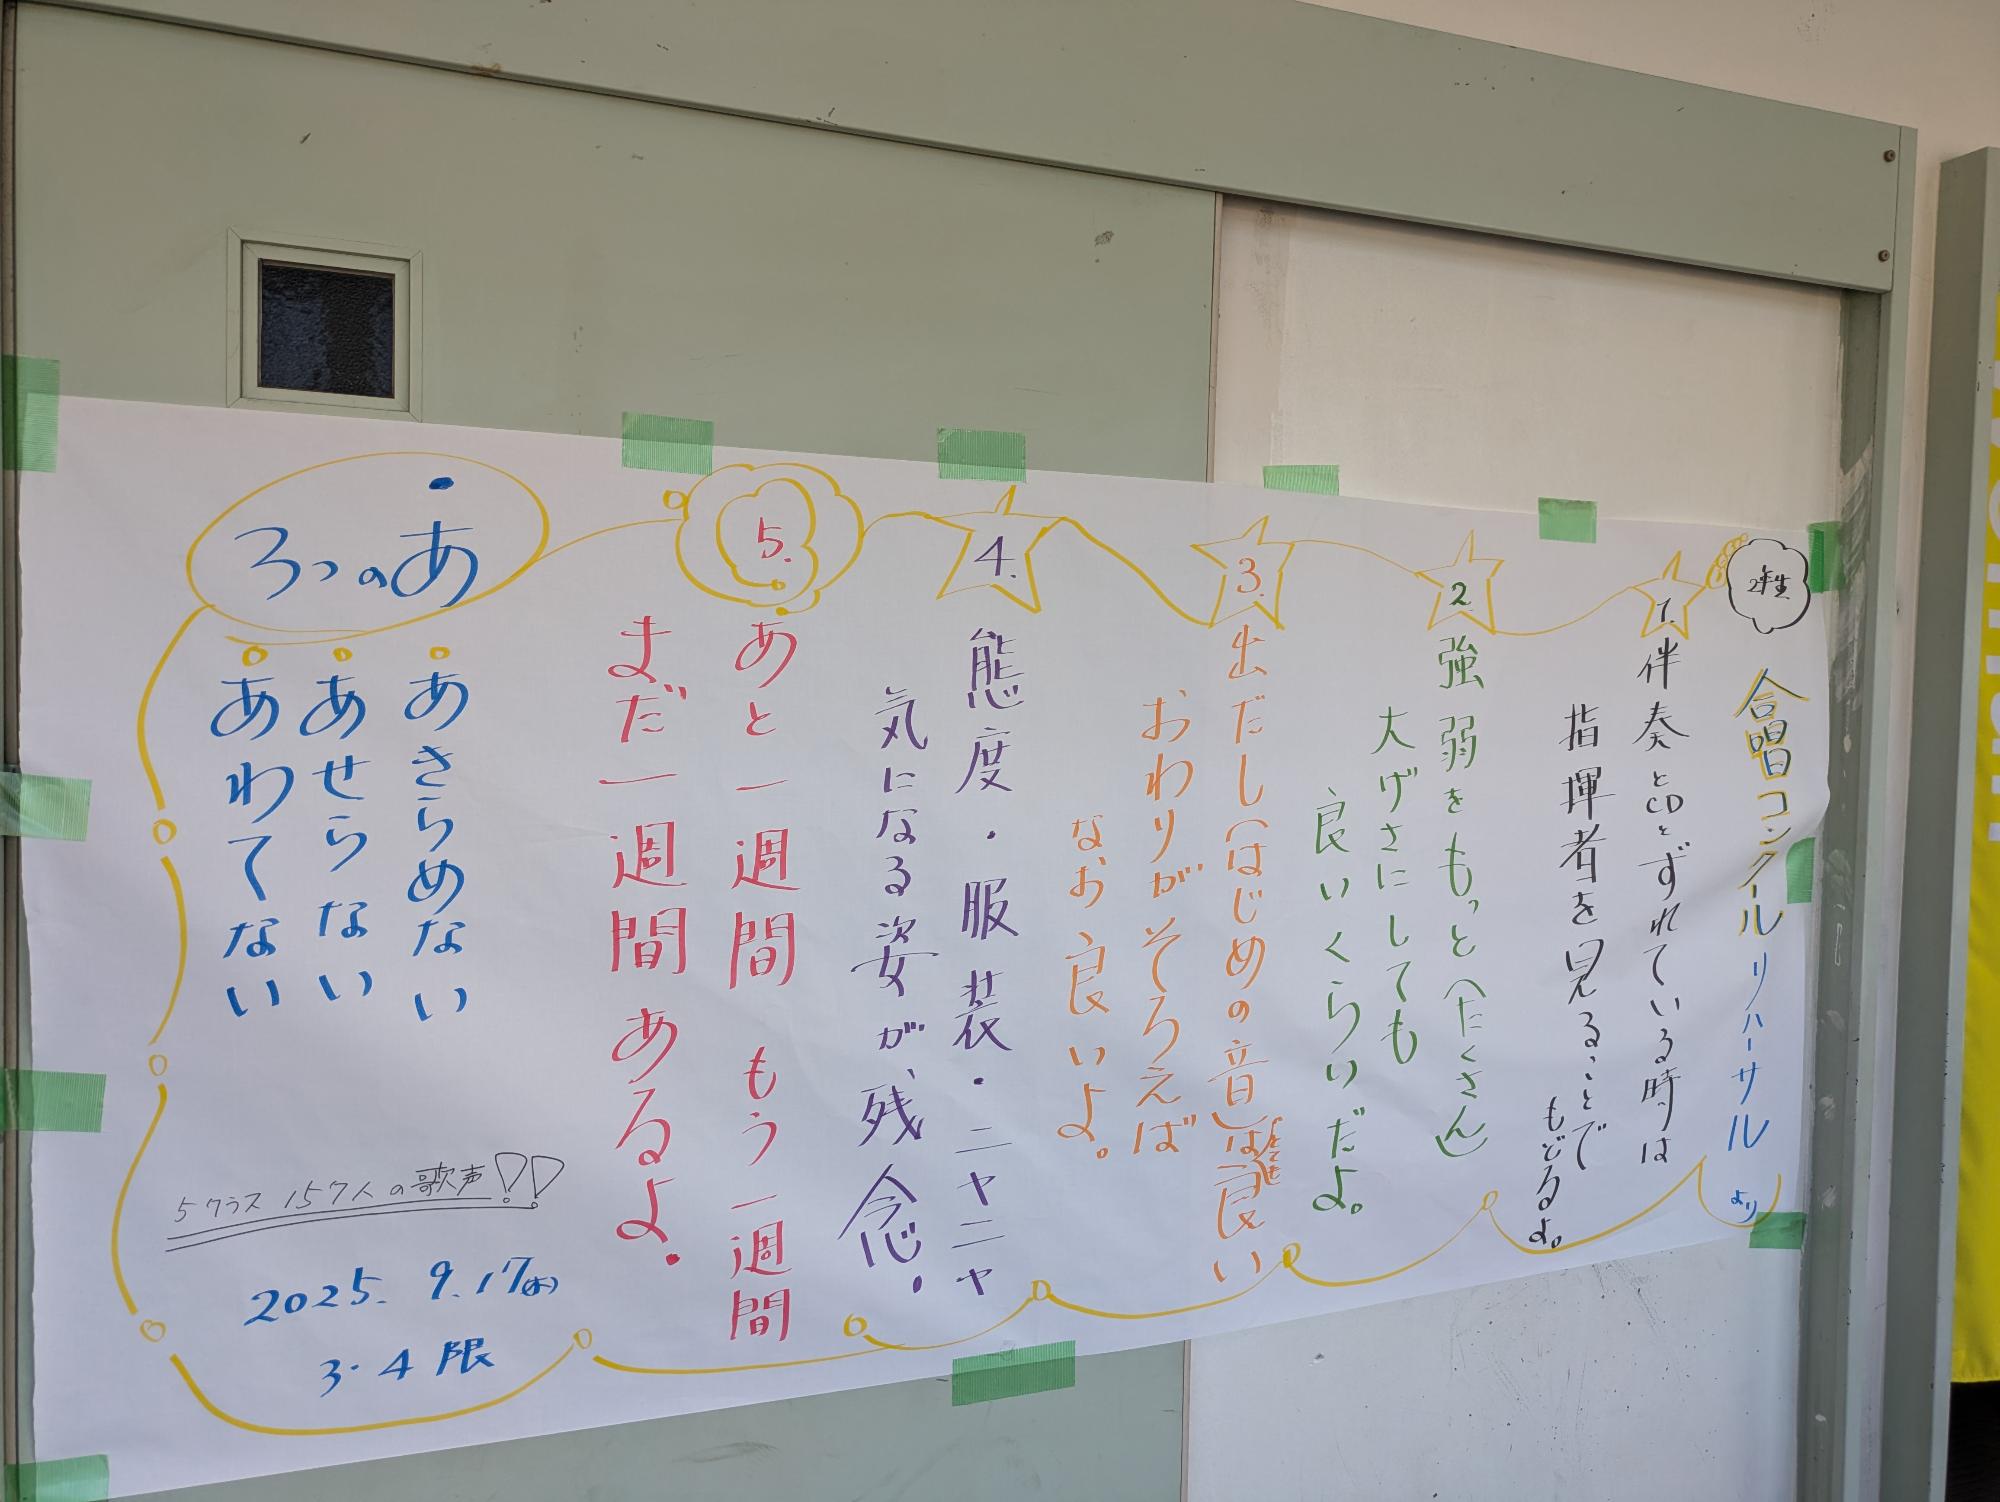 2年生
合唱コンクールリハーサルより
1. 伴奏とCDとずれている時は
指揮者を見ることで
もどるよ。
2. 強弱をもっと(たくさん)
大げさにしても
良いくらいだよ。
3. 出だし(はじめの音)はとても良い
おわりがそろえば
なお良いよ。
4. 態度・服装・ニヤニヤ
気になる姿が、残念。
5. あと一週間 もう一週間
まだ一週間あるよ。
3つのあ
あきらめない
あせらない
あわてない
5クラス 157人の歌声!!
2025. 9. 17(水)
3・4限